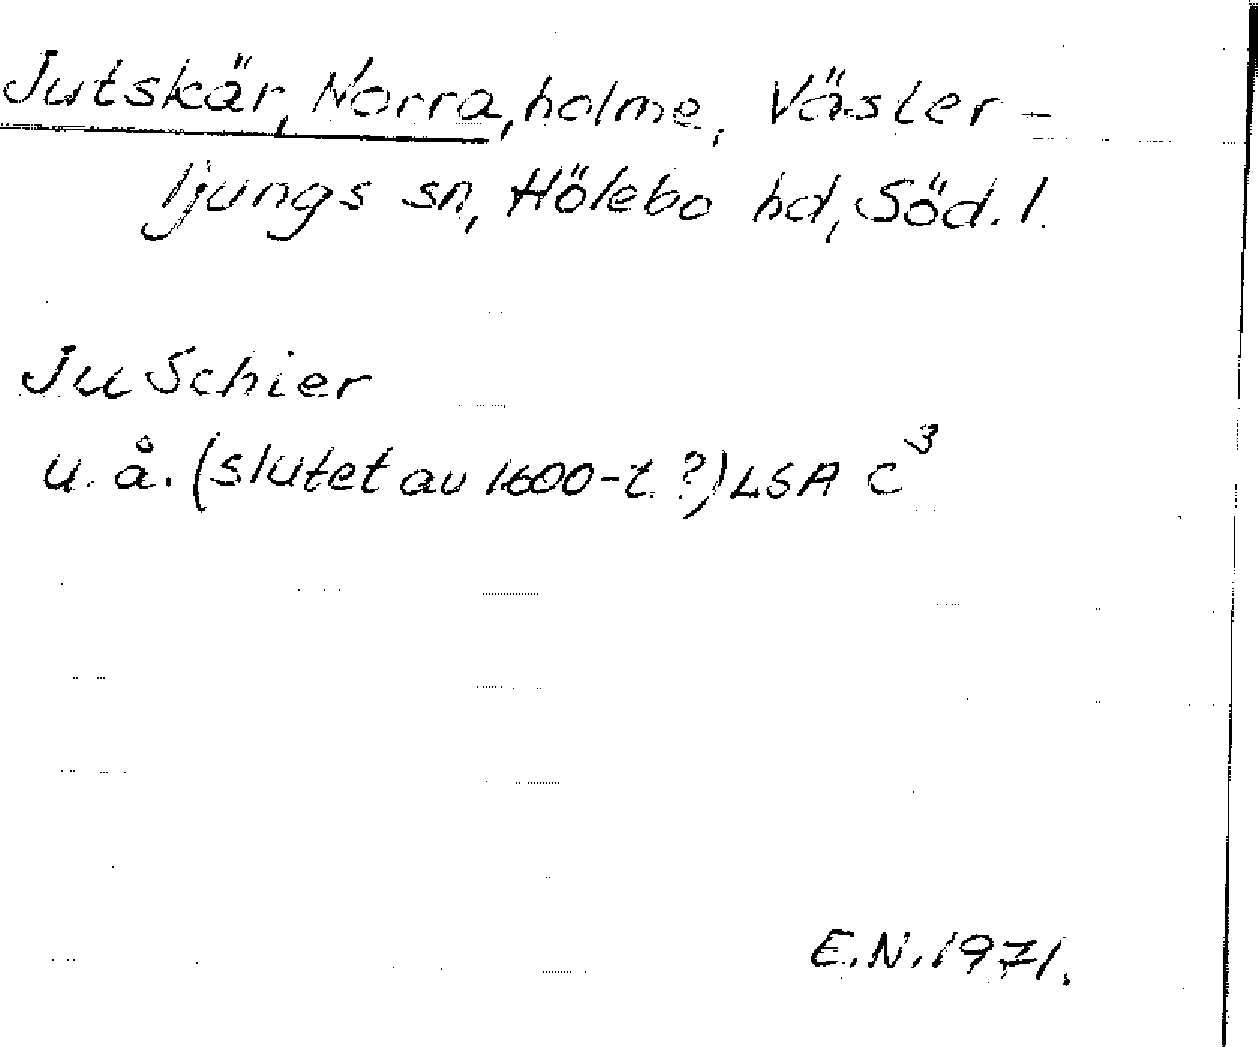 Jutskär, Norra, holme, Väster-
ljungs sn, Hölebo hd, Söd. l.
Ju Schier
u. å. (slutet av 1600-t. ?) LSA C³
E.N. 1971.